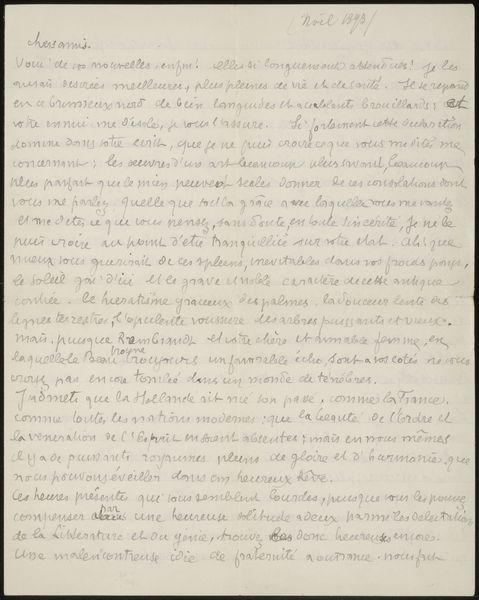 (Noël 1893)
chers amis.
Voici de vos nouvelles enfin! elles si longuement attendues! Je les
aurais désirées meilleures, plus pleines de vie et de santé. Il se repand
en ce brumeux nord de bien languides et accablants brouillards; et
votre ennui me désole, je vous l'assure. Si fortement cette
domine dans votre écrit, que je ne puis croire ce que vous me dites me
concernant; les œuvres d'un art beaucoup plus savant, beaucoup
plus parfait que le mien peuvent seules donner de ces consolations dont
vous me parlez. quelle que soit la grâce avec laquelle vous me vantez
et me dites ce que vous pensez, sans doute, en toute sincérité, je ne le
puis croire au point d'être tranquillisé sur votre état. Ah! que
mieux vous guérirait de ces spleens, inévitables dans vos froids pays,
le soleil d'ici et le grave et noble caractère de cette antique
contrée. le hieratisme gracieux des palmes. la douceur lente des
lignes terrestres, l'opulente voussure des arbres puissants et vieux.
mais, puisque Rembrandt et votre chère et aimable femme, en
laquelle le Beau trouve toujours un favorable écho, sont à vos cotés ne vous
croyez pas encore tombé dans un monde de ténèbres.
J'admets que la Hollande ait nié son passé, comme la France.
comme toutes les nations modernes; que la beauté de l'Ordre et
la veneration de l'Esprit en soient absentes; mais en nous mêmes
il y a de puissants royaumes pleins de gloire et d'harmonie que
nous pouvons éveiller dans un heureux Rêve.
Ces heures présentes qui vous semblent lourdes, puisque vous les pouvez
compenser par une heureuse solitude à deux parmi les delectations
de la Litterature et du génie, trouvez les donc heureuses encore.
Une malencontreuse idée de fraternité à outrance nous fait